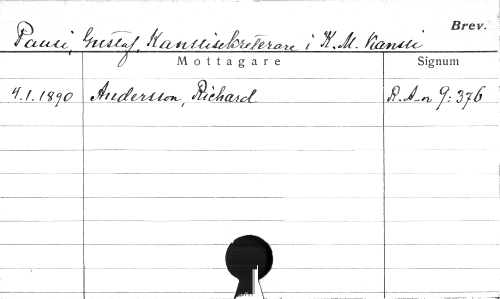 Brev.
Pausi, Gustaf, Kanslisekreterare i K. M. Kansli
Mottagare Signum
4.1.1890 Andersson, Richard R.A-n 9:376